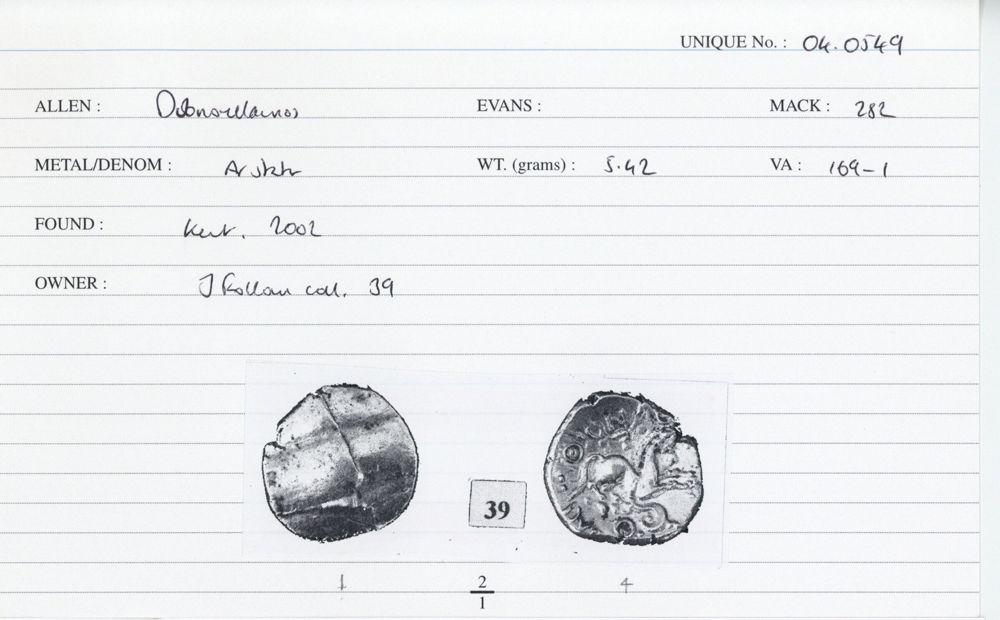 UNIQUE No. : 04.0549
ALLEN : Dubnovellaunos EVANS : MACK : 282
METAL/DENOM : WT. (grams) : 5.42 VA : 169-1
FOUND : Kent, 2002
OWNER : J coll. 39
39
1 2 4
1